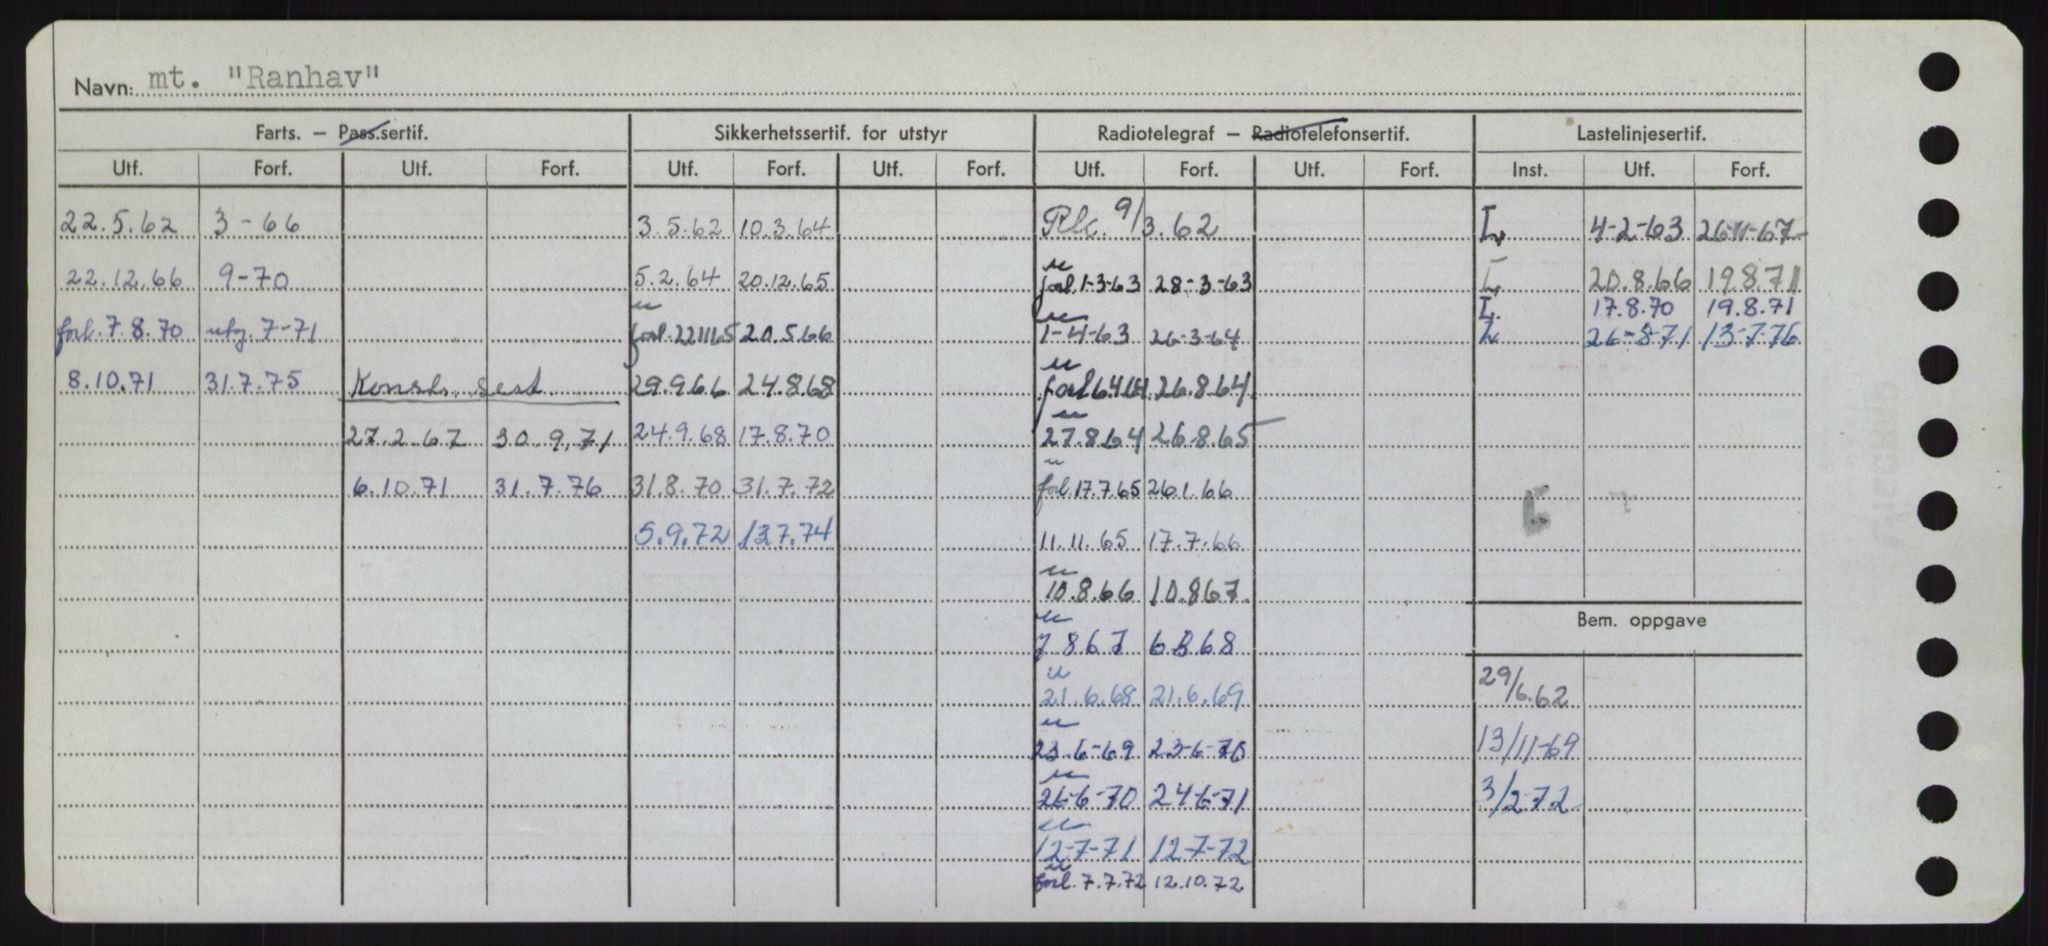 Navn: mt. "Ranhav"
Farts. – Pass.sertif. Sikkerhetssertif. for utstyr Radiotelegraf – Radiotelefonsertif. Lastelinjesertif.
Utf. Forf. Utf. Forf. Utf. Forf. Utf. Forf. Utf. Forf. Utf. Forf. Inst. Utf. Forf.
22.5.62 3-66 3.5.62 10.3.64 9/3.62 L 4-2-63 26-11-67
22.12.66 9-70 5.2.64 20.12.65 forl. 1-3-63 28-3-63 L 20.8.66 19.8.71
L. 17.8.70 19.8.71
forl. 7.8.70 7-71 forl. 22.11.65 20.5.66 1-4-63 26-3-64 L 26-8-71 13-7-76
8.10.71 31.7.75 Konstr. sert. 29.9.66 24.8.68 forl. 6.4.64 26.8.64
27.2.67 30.9.71 24.9.68 17.8.70 27.8.64 26.8.65
6.10.71 31.7.76 31.8.70 31.7.72 forl. 17.7.65 26.1.66
5.9.72 13.7.74 11.11.65 17.7.66
10.8.66 10.8.67.
Bem. oppgave
7 8 67 6 8 68
21.6.68 21.6.69 29/6.62
23-6-69 23-6-70 13/11-69
26-6-70 24-6-71 3/2-72
12-7-71 12-7-72
forl. 7.7.72 12.10.72